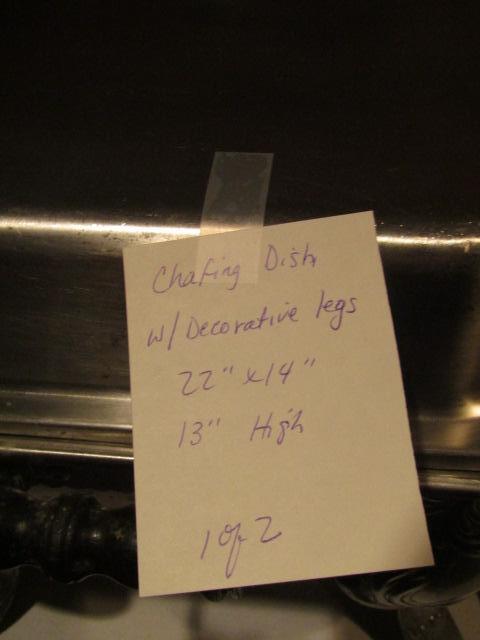 Chafing Dish
w/ Decorative legs
22" x 14"
13" High
1 of 2